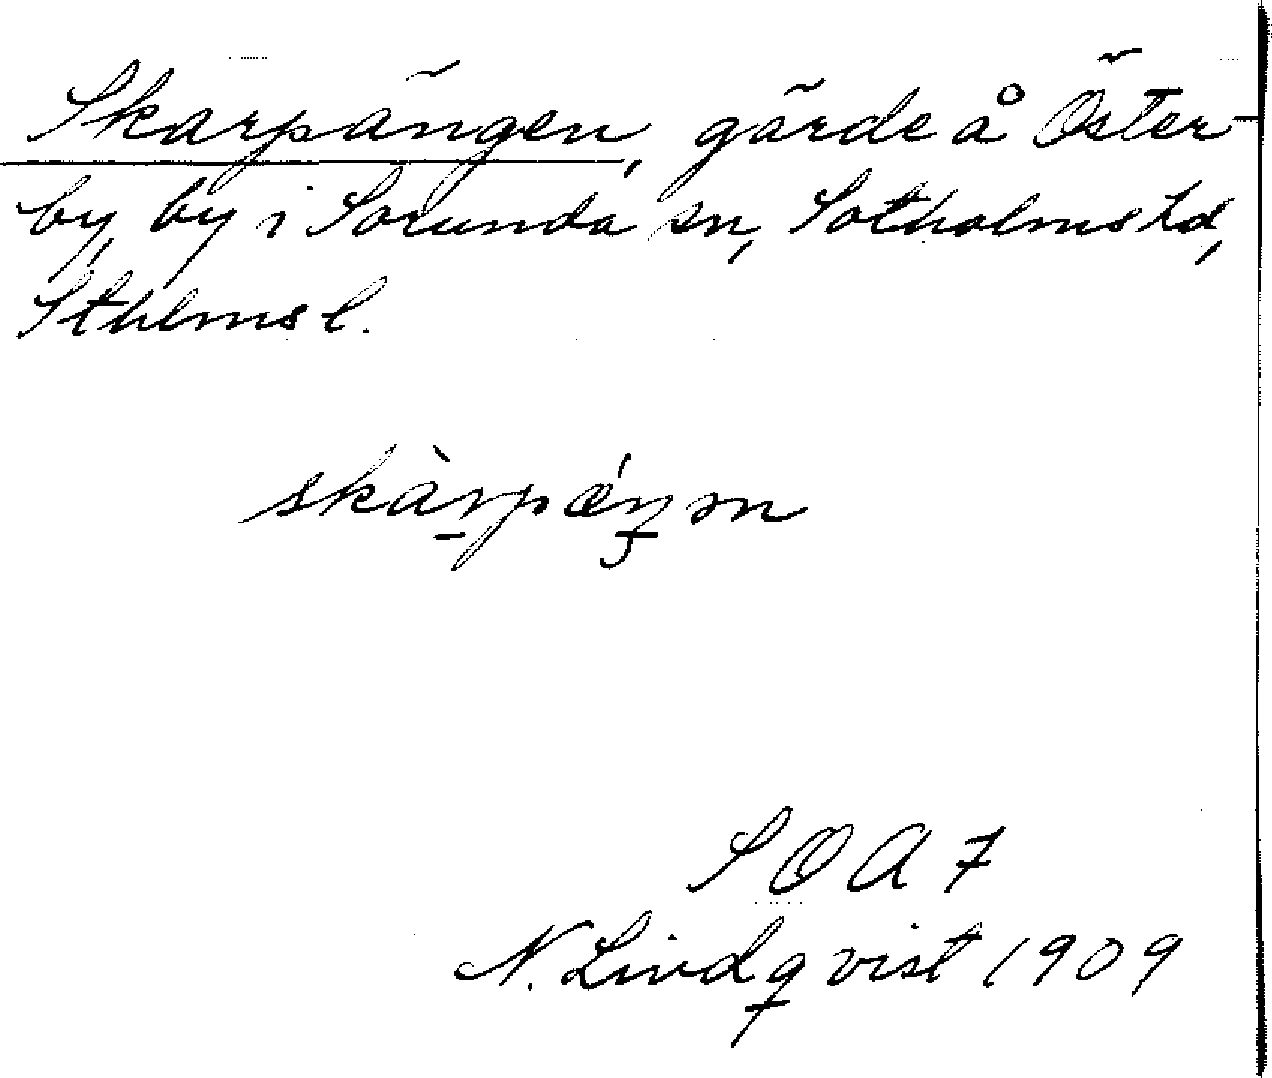 Skarpängen, gärde å Öster-
by, by i Sorunda sn, Sotholms hd,
Sthlms l.
skàrpǽŋən
SOA 7
N. Lindqvist 1909